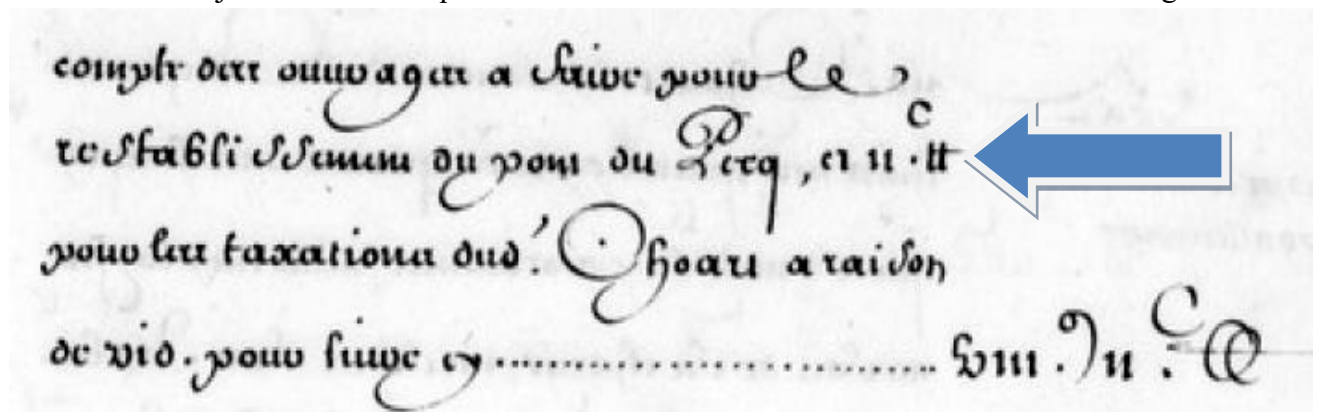 compte des ouvrages a faire pour le
restablissement du pont du Pecq, et IIc ₶
pour les taxations dud. Thoart a raison
de VI d. pour livre cy ........................ VIIIm IIc ₶